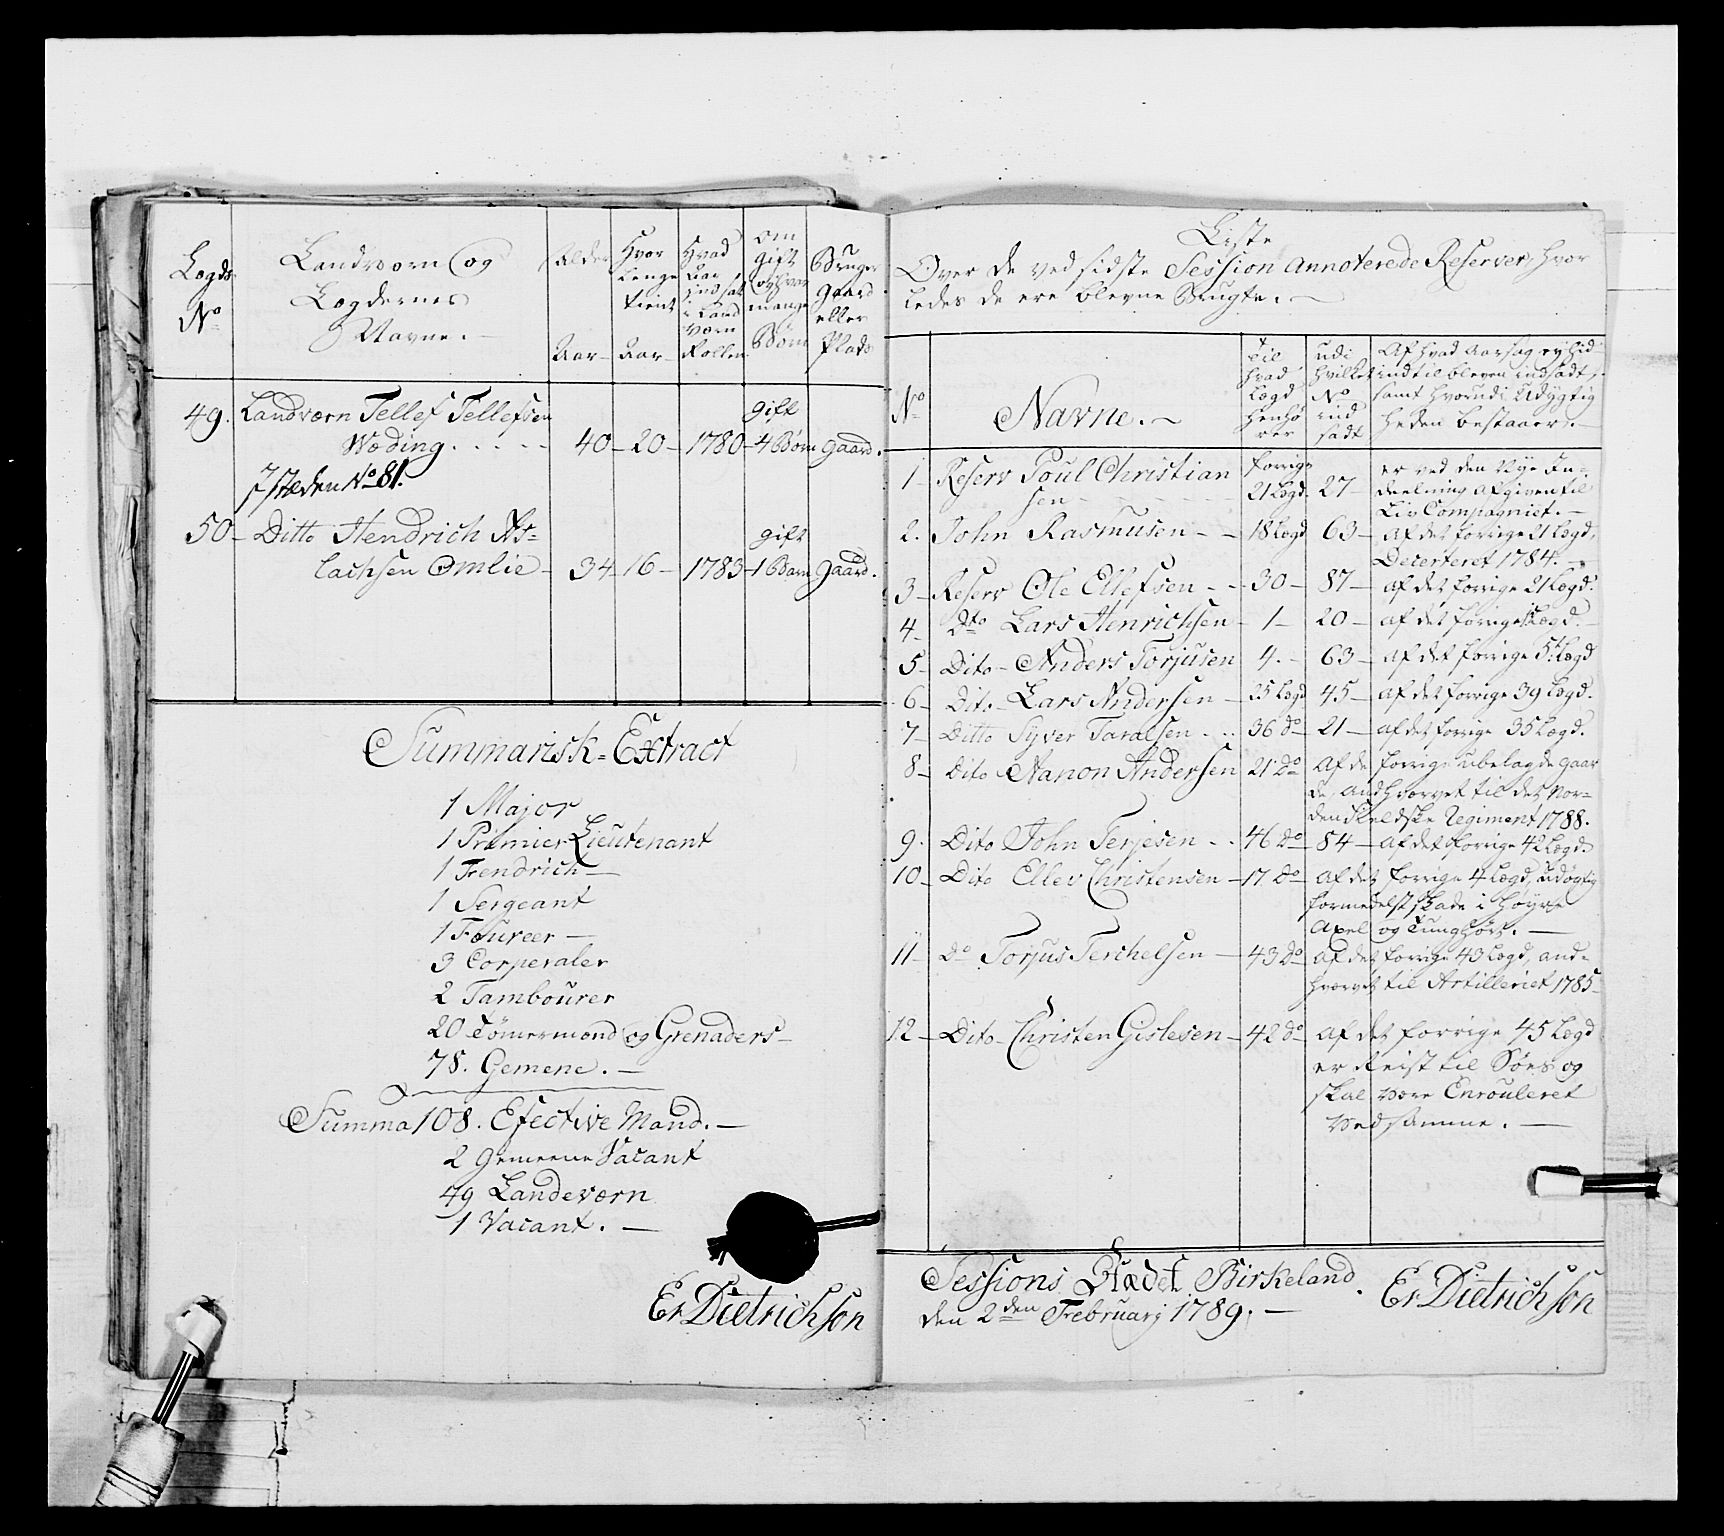 Lægds
No
Landværn og
Lægdernes
Navne.
Alder
Aar
Hvor
Længe
tient
Aar
Hvad
Aar
indsat
i Land
Værn
Rollen
om
gift
og hvor
mange
Børn
Bruger
gaard
eller
Plads
49. Landværn Tellef Tellefsen gift
Wæding. 40 - 20 - 1780 - 4 Børn gaard.
I stæden No 81.
50 - Ditto Hendrich As= gift
lachsen Omlie - 34 - 16 - 1783 - 1 Barn gaard.
Summarisk - Extract
1 Major
1 Primier Lieutenant
1 Fendrich
1 Sergeant
1 Foureer
3 Corporaler
2 Tambourer
20 Tömermænd og Grenaders
78. Gemene.
Summa 108. Efective Mand.
2 gemeene Vacant
49 Landeværn
1 Vacant.
Er Dietrichson
Liste
Over de ved sidste Session annoterede Reserver, hvor
ledes de ere blevne Brugte.
No
Navne.
Til
hvad
Lægd
henhø
rer
udi
hvilket
No
ind
sadt
Af hvad aarsag ey hid
indtil bleven indsadt,
samt hvorudi Udygtig
heden bestaaer.
1 - Reserv Poul Christian forrige er ved den Nye In=
sen - 21 Lægd. 27 - deelning afgiven til
Liv Compagniet.
2. John Rasmusen - 18 Lægd 63 - af det forrige 21 Lægd,
Decerteret 1784.
3 - Reserv Ole Ellefsen - 30 - 87 - af det forrige 21 Lægd.
4 - Dto Lars Henrichsen - 1 - 20 - af det forrige Lægd.
5 - Dito - Anders Torjusen 4. - 63 - af det forrige 5te Lægd
6 - Dito - Lars Andersen - 25 Lægd 45 - af det forrige 39 Lægd.
7 - Ditto Syver Taralsen - 36 do 21 - af det forrige 35 Lægd.
8 - Dito - Nanon Andersen 21 Do Af de forrige ubelagde gaar
de, andhvervet til det Nor=
denfieldske Regiment 1788.
9. Dito John Terjesen - 46 Do 84 - af det forrige 42 Lægd
10 - Dito Ellev Christensen - 17. Do Af det forrige 4 Lægd, udøgtig
formedelst skade i høyre
Axel og tunghørt.
11 - Do Torjus Terchelsen - 43 Do af det forrige 43 Lægd, and=
hvervet til Artilleriet 1785
12 - Dito - Christen Gislesen - 42 do Af det forrige 45 Lægd
er Reist til Söes og
skal være Enrouleret
ved samme.
Sessions Stædet Birkeland.
den 2den Februarj 1789.
Er Dietrichson